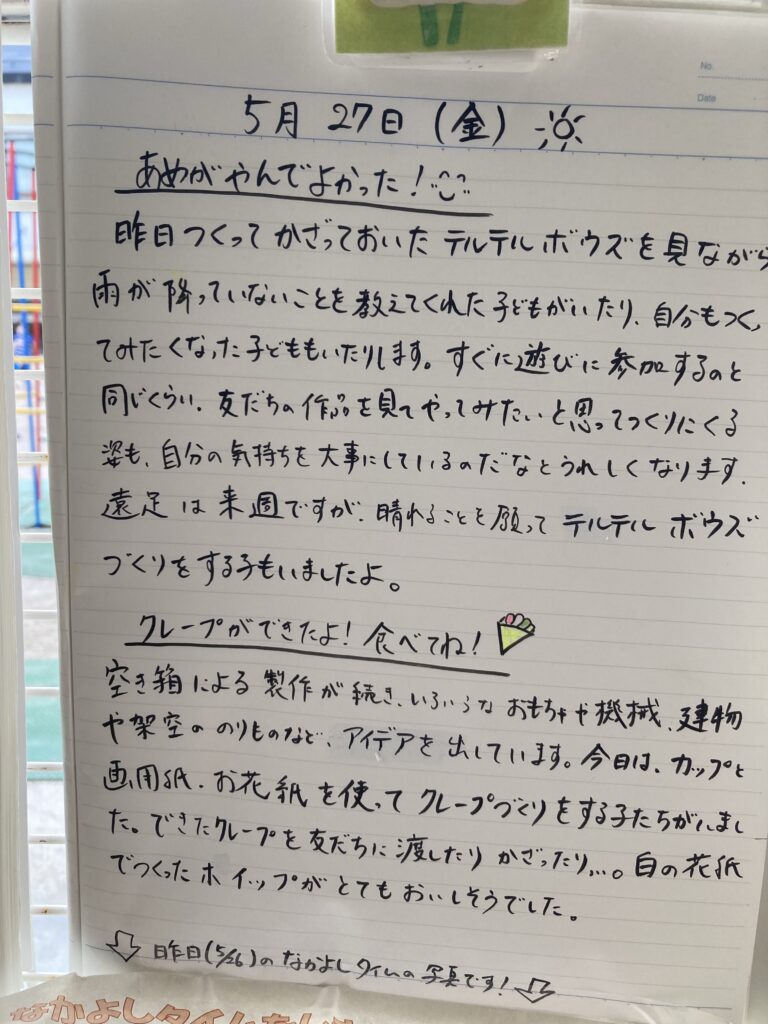 No.
Date
5月 27日 (金)
あめがやんでよかった!
昨日つくってかざっておいた テルテルボウズを見ながら
雨が降っていないことを教えてくれた子どもがいたり、自分もつく
てみたくなった子どももいたりします。すぐに遊びに参加するのと
同じくらい、友だちの作品を見てやってみたいと思ってつくりにくる
姿も、自分の気持ちを大事にしているのだなとうれしくなります。
遠足は来週ですが、晴れることを願って テルテルボウズ
づくりをする子もいましたよ。
クレープができたよ! 食べてね!
空き箱による製作が続き、いろいろなおもちゃや機械、建物
や架空ののりものなど、アイデアを出しています。今日は、カップと
画用紙、お花紙を使ってクレープづくりをする子たちがいまし
た。できたクレープを友だちに渡したりかざったり…。白の花紙
でつくったホイップがとてもおいしそうでした。
⇩ 昨日(5/26)のなかよしタイムの写真です! ⇩
なかよしタイム